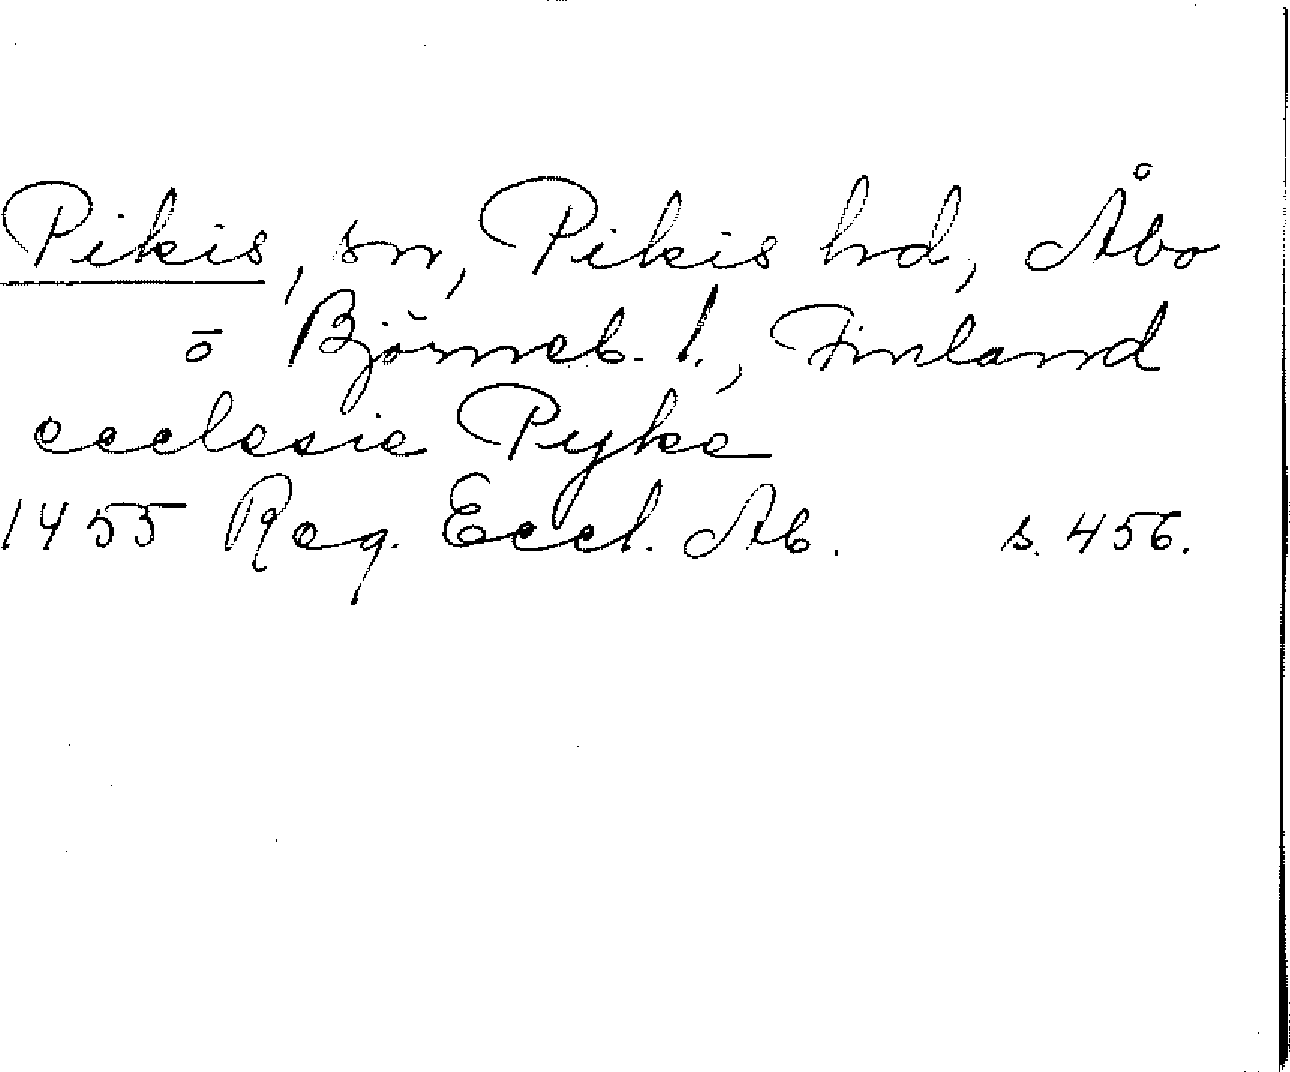 Pikis, sn, Pikis hd, Åbo
o Björneb. l., Finland
ecclesie Pyke
1455 Reg. Eccl. Ab. s. 456.